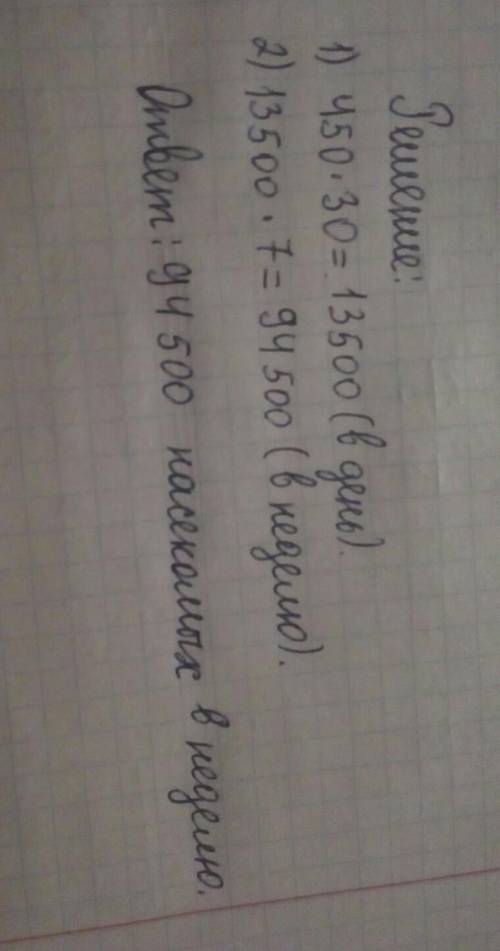 Решение:
1) 450 · 30 = 13500 (в день).
2) 13500 · 7 = 94500 (в неделю).
Ответ: 94500 насекомых в неделю.